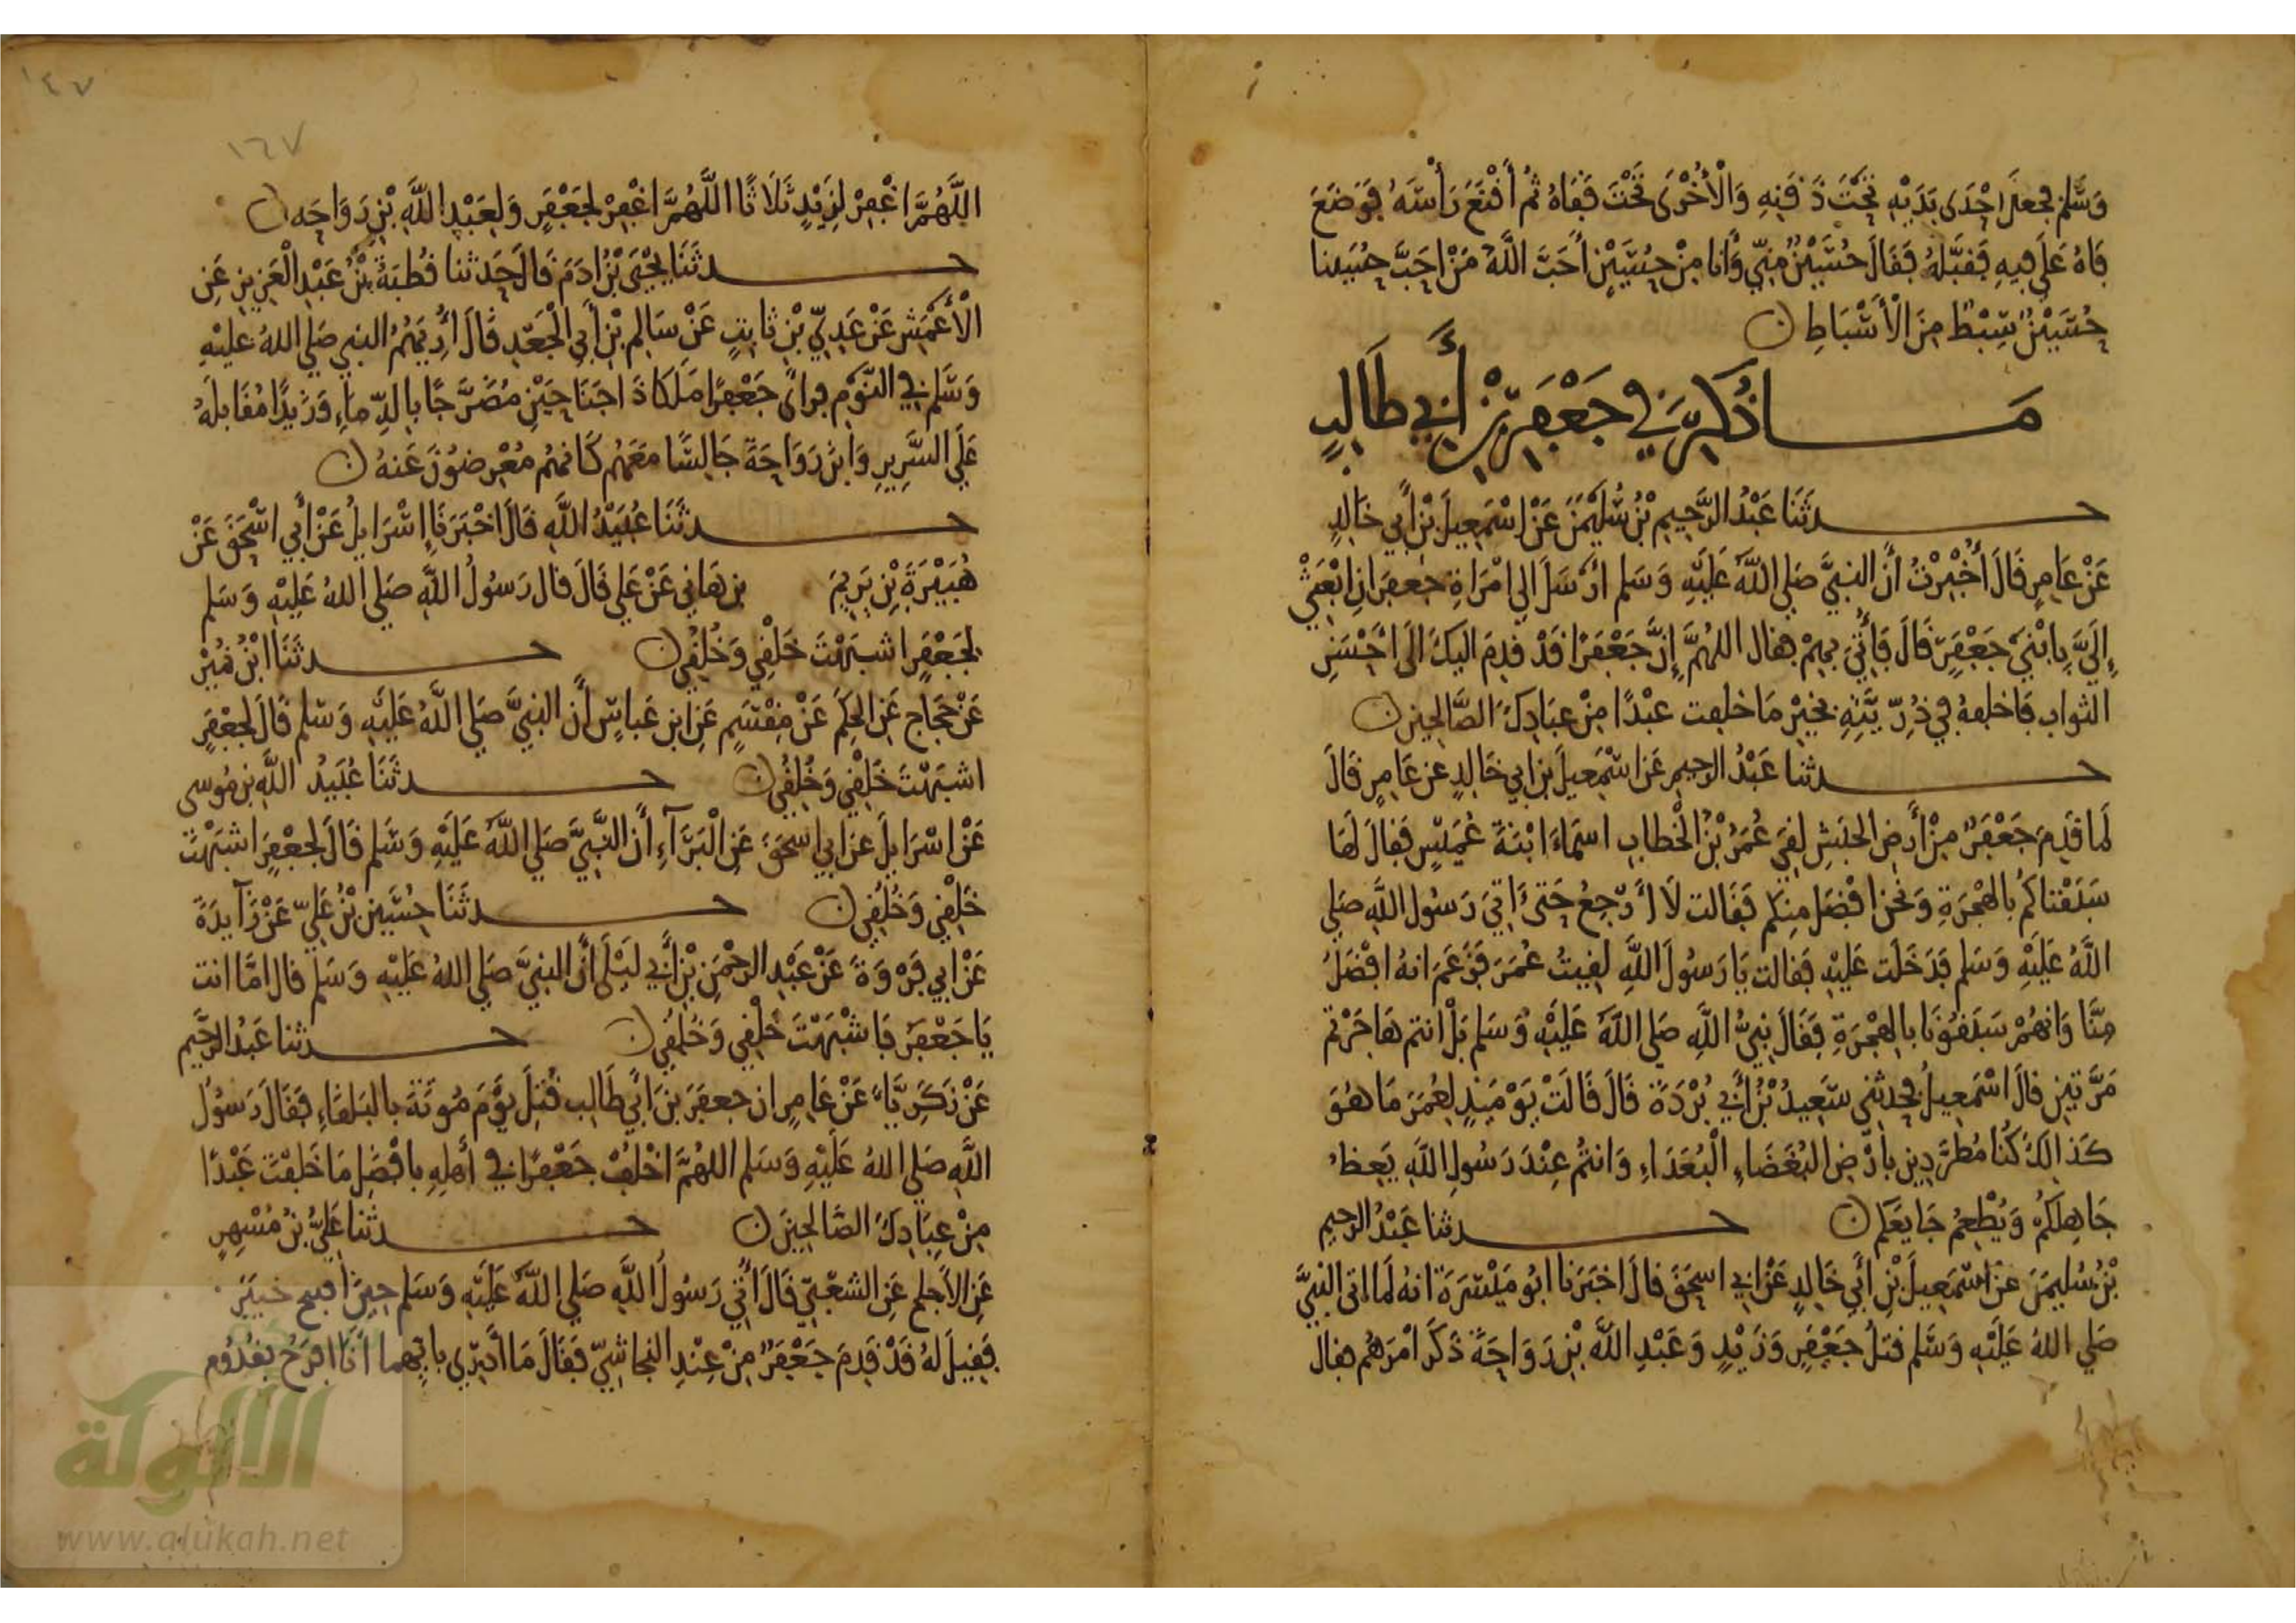 وَسَّلم فجعلَ احْدَى يَدَيْهِ تَحْتَ ذَقَنِهِ وَالْأُخْرَى تَحْتَ قَفَاهُ ثُم أَقْنَعَ رَأْسَهُ فَوَضَعَ
فَاهُ عَلَى فيهِ فَقَبَّلَهُ فَقَالَ حُسَيْنٌ مِنِّي وَأنا مِنْ حُسَيْنٍ أَحَبَّ اللَّهُ مَنْ احَبَّ حُسَيْنا
حُسَيْنٌ سِبْطٌ مِنَ الْأَسْبَاطِ ن
مَا ذُكِرَ في جَعْفَرِ بْنِ أَبي طَالِبٍ
حدثَنَا عَبْدُ الرَّحِيمِ بْنُ سُلَيْمَنَ عَنْ اسْمَعِيلَ بْنِ أَبي خَالِدٍ
عَنْ عَامِرٍ قَالَ أُخْبِرْتُ أَنَّ النبيَّ صَلي اللَّهُ عَلَيْهِ وَسَلم ارْسَلَ الي امْرَاةِ جعفَرَ انِ ابْعَثي
إِلَيَّ بِابْنَيْ جَعْفَرٍ قَالَ فَأُتِيَ بهِمْ فقال اللهُمَّ إِنَّ جَعْفَرًا قَدْ قدِمَ اليكَ الَى احْسَنِ
الثواب فَاخلفهُ في ذُرِّيَّتِهِ بخيْرِ مَا خلفت عبْدًا مِنْ عِبَادِكَ الصَّالحِينَ ن
حدثنا عَبْدُ الرحيم عَن اسْمَعيلَ بن ابي خَالِدٍ عن عَامِرٍ قَالَ
لَما قَدِمَ جَعْفَرٌ مِنْ أَرضِ الحبَشِ لقيَ عُمَرُ بْنُ الْخطابِ اسمَاءَ ابْنَةَ عُمَيْسٍ فَقالَ لَهَا
سَبَقْنَاكُمْ بالهجْرَةِ وَنحْن افْضَل مِنكم فَقَالت لَا أَرْجعُ حَتىَ اتِيَ رَسُول اللَّهِ صَلي
اللَّهُ عَلَيْهِ وَسَلم فدَخَلَت عَلَيْهِ فَقالت يَا رَسُولَ اللَّهِ لقِيتُ عُمَرَ فَزَعَمَ انهُ افْضَلُ
مِنَّا وَانهُمْ سَبَقُونَا بالهجْرَةِ فَقَالَ نبيُّ اللَّهِ صَلي اللَّهُ عَلَيْهِ وَسَلم بَلْ انتم هَاجَرْتم
مَرَّتين قالَ اسْمَعِيلُ فحدثني سَعِيدُ بْنُ أَبي بُرْدَةَ قَالَ قَالَتْ يَوْمَئِذٍ لِعُمَرَ مَا هُوَ
كَذَالِكَ كُنا مُطرَّدِين بأرْضِ البُغَضَاءِ الْبُعَدَاءِ وَانتُمْ عِنْدَ رَسُولِ اللَّهِ يَعِظُ
جَاهِلكمْ وَيُطْعِمُ جَايعَكم ن حدثنا عَبْدُ الرحيم
بْنُ سُليمَنَ عنْ اسْمَعِيلَ بْنِ أَبي خَالِدٍ عَنْ ابي اسحَقَ قالَ اخبَرَنا ابُو مَيْسَرَةَ انهُ لَما اتى النبيَّ
صَلي اللهُ عَلَيْهِ وَسَّلم قتلُ جَعْفَرٍ وَزَيْدٍ وَعَبْدِ اللَّهِ بْنِ رَوَاحَةَ ذَكَرَ امْرَهُم فقال
١٤٧
١٦٧
اللَّهُمَّ اغْفِرْ لِزَيْدٍ ثَلَاثًا اللَّهُمَّ اغْفِرْ لجَعْفَرٍ وَلِعَبْدِ اللَّهِ بْنِ رَوَاحَه ن
حدثَنَا يَحْيَى بْنُ ادَمَ قَالَ حَدثنا قُطبَةُ بْنُ عَبْدِ الْعَزِيزِ عَنِ
الْأَعْمَشِ عَنْ عَدِيِّ بْنِ ثَابتٍ عَنْ سَالِمِ بْنِ أَبي الْجَعْدِ قَالَ أُرِيَهُمُ النبي صَلي اللهُ عليْهِ
وَسَّلم في النَّوْمِ فرأى جَعْفَرًا مَلَكًا ذَا جَنَاحَيْنِ مُضَرَّجًا بالدِّماءِ وَزَيْدًا مُقَابلهُ
عَلَى السَّرِيرِ وَابْنَ رَوَاحَةَ جَالِسًا مَعَهُم كَانهُم مُعْرِضُونَ عَنهُ ن
حدثَنَا عُبَيْدُ اللَّهِ قَالَ اخْبَرَنَا إِسْرَايلُ عَنْ أَبي اسْحَقَ عَنْ
هُبَيْرَةَ بْنِ يَرِيمَ بن هَاني عَنْ عَلي قَالَ قال رَسُولُ اللَّهِ صَلي اللهُ عَلَيْهِ وَسَلم
لجَعْفَرٍ اشبَهْتَ خَلْقِي وَخُلُقِي ن حدثَنَا ابْنُ نُمَيْرْ
عَنْ حَجاجٍ عَنِ الحكَم عَنْ مِقْسَمٍ عَنِ ابن عَبَّاسٍ أَن النبيَّ صَلي اللَّهُ عَلَيْهِ وَسَّلم قَالَ لجَعْفَرٍ
اشبَهْتَ خَلْقِي وَخُلُقِي ن حدثَنَا عُبَيْدُ اللَّهِ بن مُوسى
عَنْ اسْرَايلَ عن ابي اسحَقَ عَنِ الْبَرَآءِ أَنَّ النَّبيَّ صَلي اللَّهُ عَلَيْهِ وَسَلم قَالَ لجَعْفَرٍ اشبَهْتَ
خَلْقِي وَخُلُقِي ن حدثَنَا حُسَيْنُ بْنُ عَلِيٍّ عَنْ زَآيِدَةَ
عَنْ ابي فَرْوَةَ عَنْ عَبْدِ الرحْمَنِ بْنِ أَبي لَيْلَى أَنَّ النبيَّ صَلي اللهُ عَلَيْهِ وَسَلم قال امَّا انت
يَا جَعْفَرُ فَاشْبَهْتَ خَلْقِي وَخُلُقِي ن حدثنا عَبْدُ الرَّحِيم
عَنْ زَكَرِيَّاءَ عَنْ عَامِرٍ ان جعفَرَ بنَ أَبي طَالِبٍ قُتِلَ يَوْمَ مُوتَةَ بالبَلقَاءِ فَقَالَ رَسُولُ
اللَّهِ صَلي اللهُ عَلَيْهِ وَسَلم اللهُمَّ اخْلُفْ جَعْفَرًا في أَهلِهِ بافْضَلِ مَا خَلفْتَ عَبْدًا
مِنْ عِبَادِكَ الصَّالحِينَ ن حدثنا عَلِيُّ بْنُ مُسْهِرٍ
عَنِ الأَجلحِ عَنِ الشعْبيِّ قَالَ أُتِيَ رَسُولُ اللَّهِ صَلي اللَّهُ عَلَيْهِ وَسَلم حِينَ افتتح خَيْبَرَ
فَقِيلَ لَهُ قَدْ قَدِمَ جَعْفَرٌ مِنْ عِنْدِ النجاشيِّ فَقَالَ مَا أَدْرِي بايِّهما أَنَا افرَحُ بقُدُومِ
الألوكة
www.alukah.net